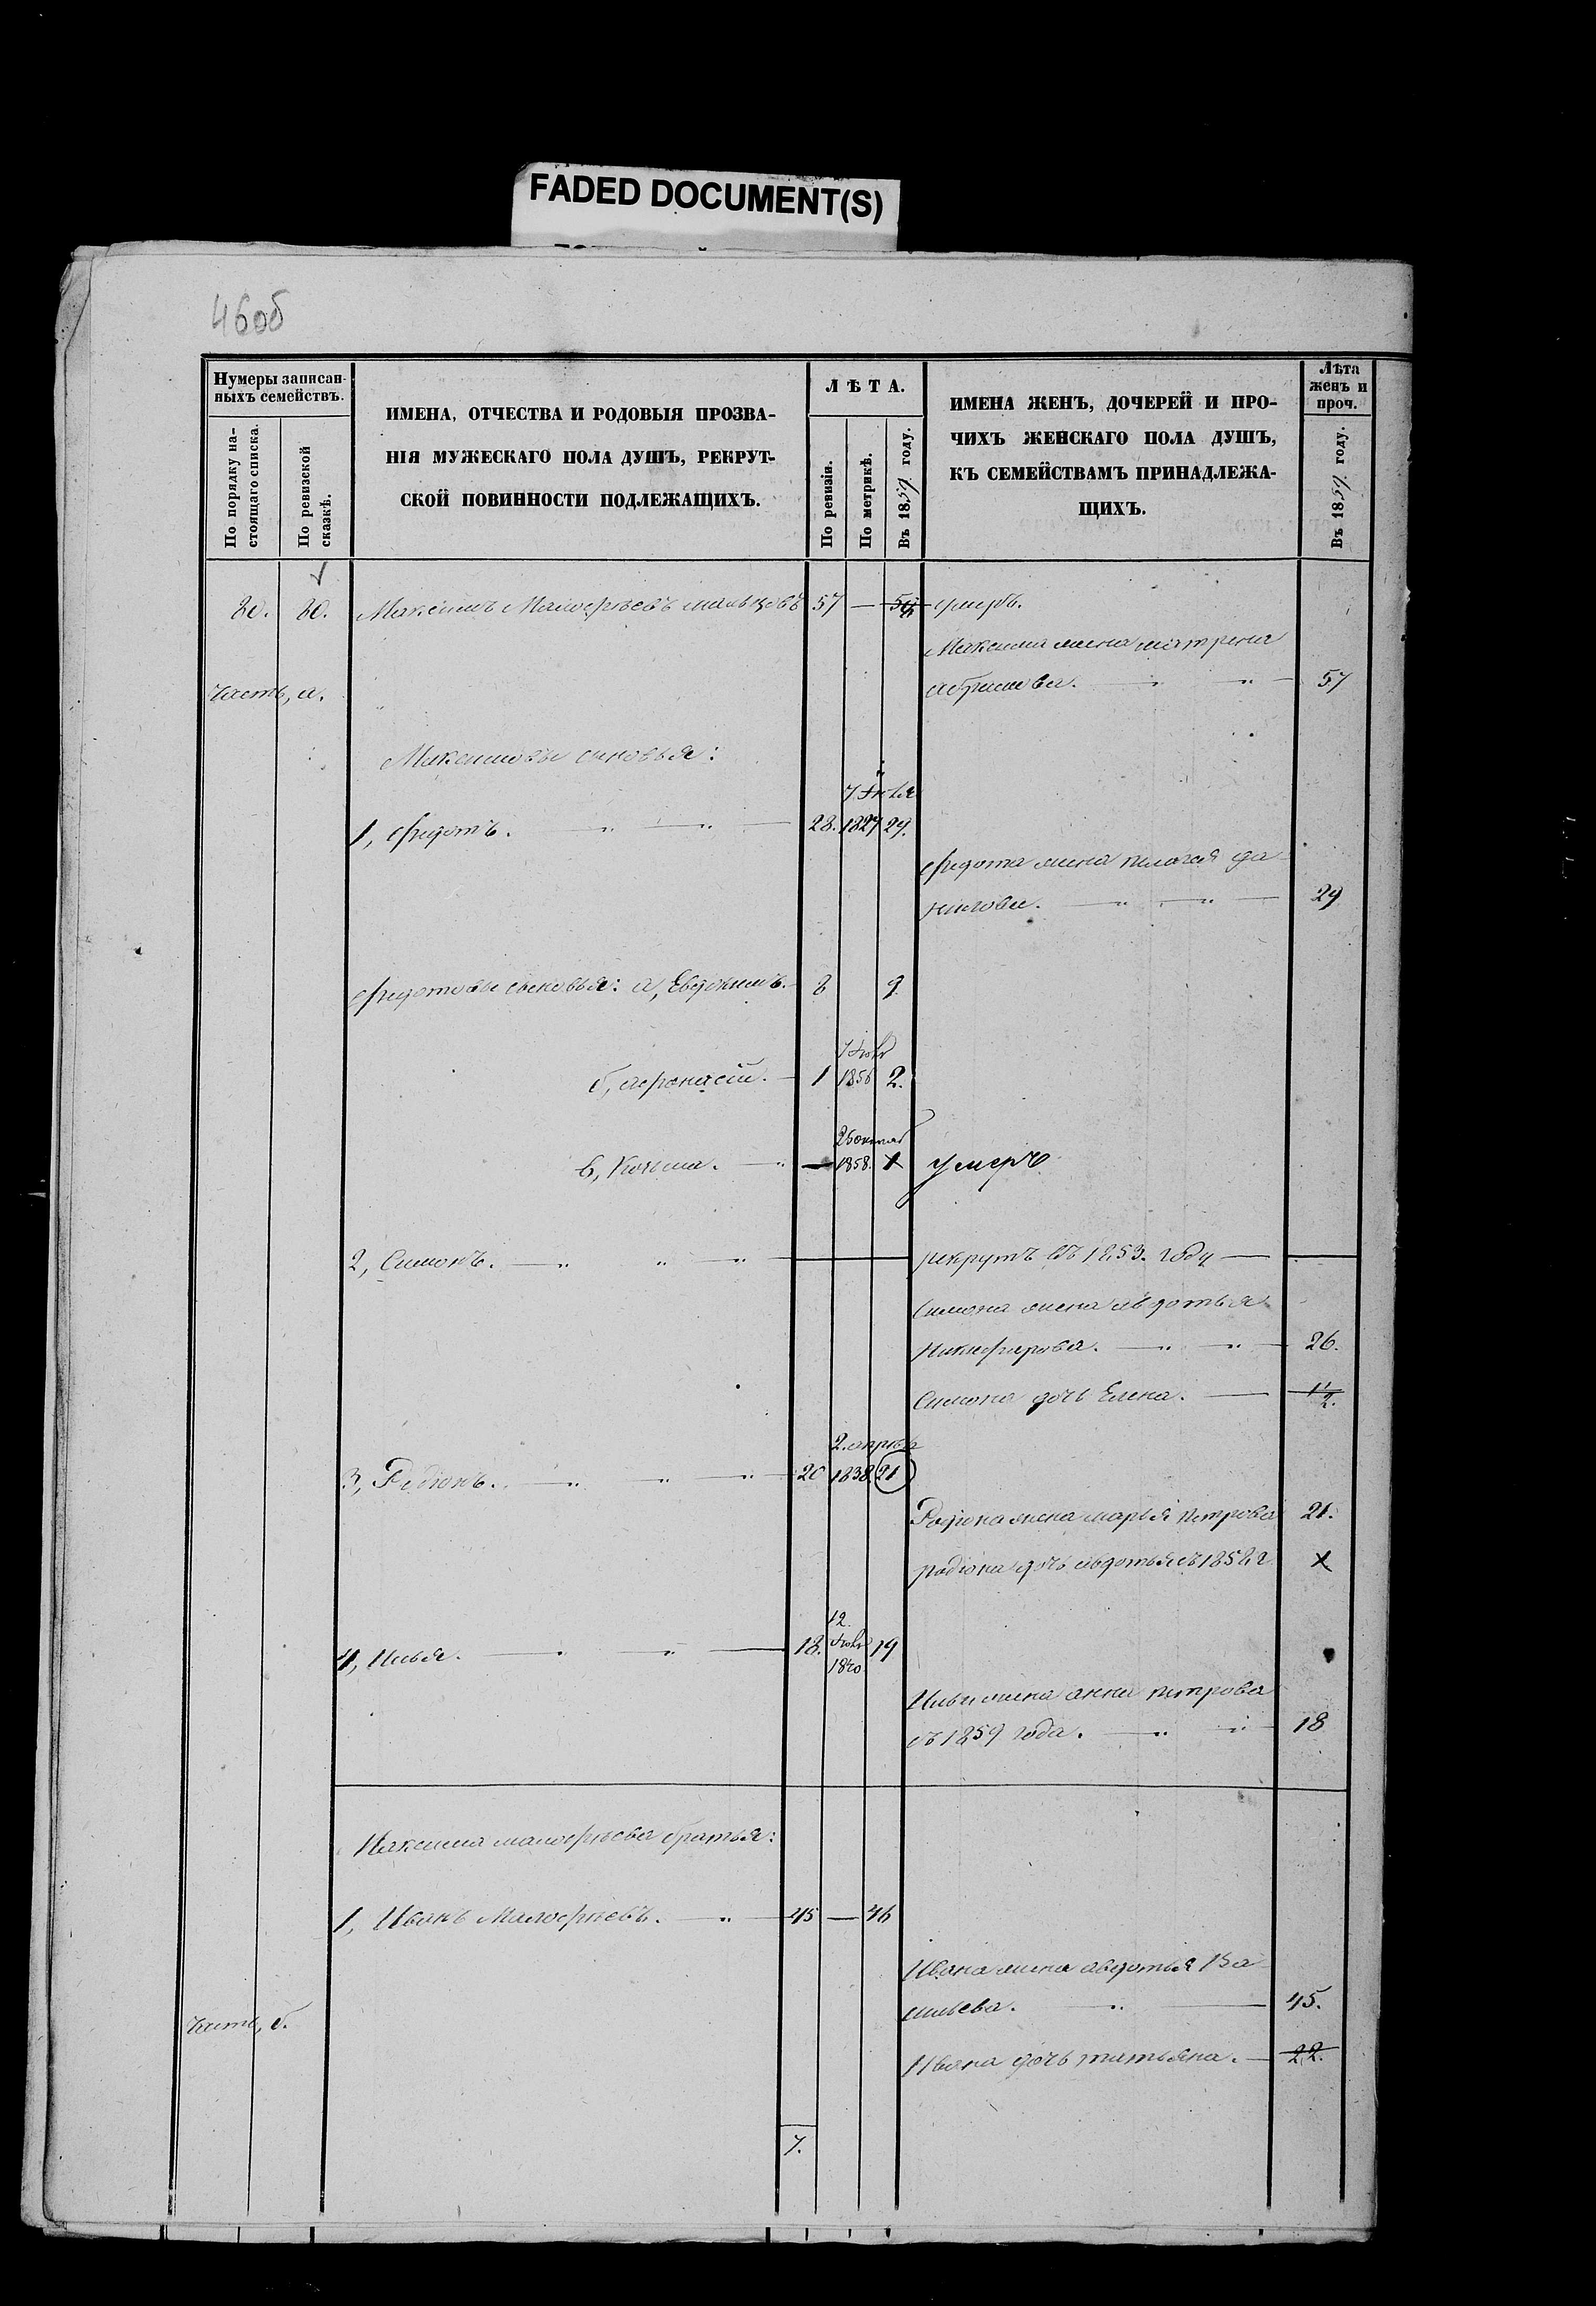 FADED DOCUMENT(S)
46об
Нумеры записан-
ныхъ семействъ.
По порядку на-
стоящаго списка.
По ревизской
сказкѣ.
ИМЕНА, ОТЧЕСТВА И РОДОВЫЯ ПРОЗВА-
НІЯ МУЖЕСКАГО ПОЛА ДУШЪ, РЕКРУТ-
СКОЙ ПОВИННОСТИ ПОДЛЕЖАЩИХЪ.
ЛѢТА.
По ревизіи.
По метрикѣ.
Въ 1859. году.
ИМЕНА ЖЕНЪ, ДОЧЕРЕЙ И ПРО-
ЧИХЪ ЖЕНСКАГО ПОЛА ДУШЪ,
КЪ СЕМЕЙСТВАМЪ ПРИНАДЛЕЖА-
ЩИХЪ.
Лѣта
женъ и
проч.
Въ 1859. году.
20. 20. Максимъ Малофѣевъ 57 — 58 умеръ.
Максима жена матрена
абрамова. 57
Часть, а.
Максимовы сыновья:
7 Іюля
1, Федотъ. 28. 1829 29.
Федота жена пелагея да
нилова. 29
Федотовы сыновья: а, Евдокимъ. 8 9
7 Іюля
б, афонасій. 1 1856 2.
25 октяб
в, Козьма. — 1858. 1 умеръ
2, Симонъ. рекрутъ въ 1853. году
Симона жена авдотья
Никифорова. 26.
Симона дочь Елена. 11/2.
2. апрѣл
3, Родіонъ. 20 1838 21
Родіона жена марья петрова 21.
родіона дочь авдотья съ 1858 г
12
4, Илья. 18. Іюля 19
1840
Ильи жена анна петрова
съ 1859 года. 18
Максима малофѣева братья:
1, Иванъ Малофѣевъ. 45 — 46
Ивана жена авдотья Ва
сильева. 45.
Часть, б.
Ивана дочь татьяна. 22.
7.